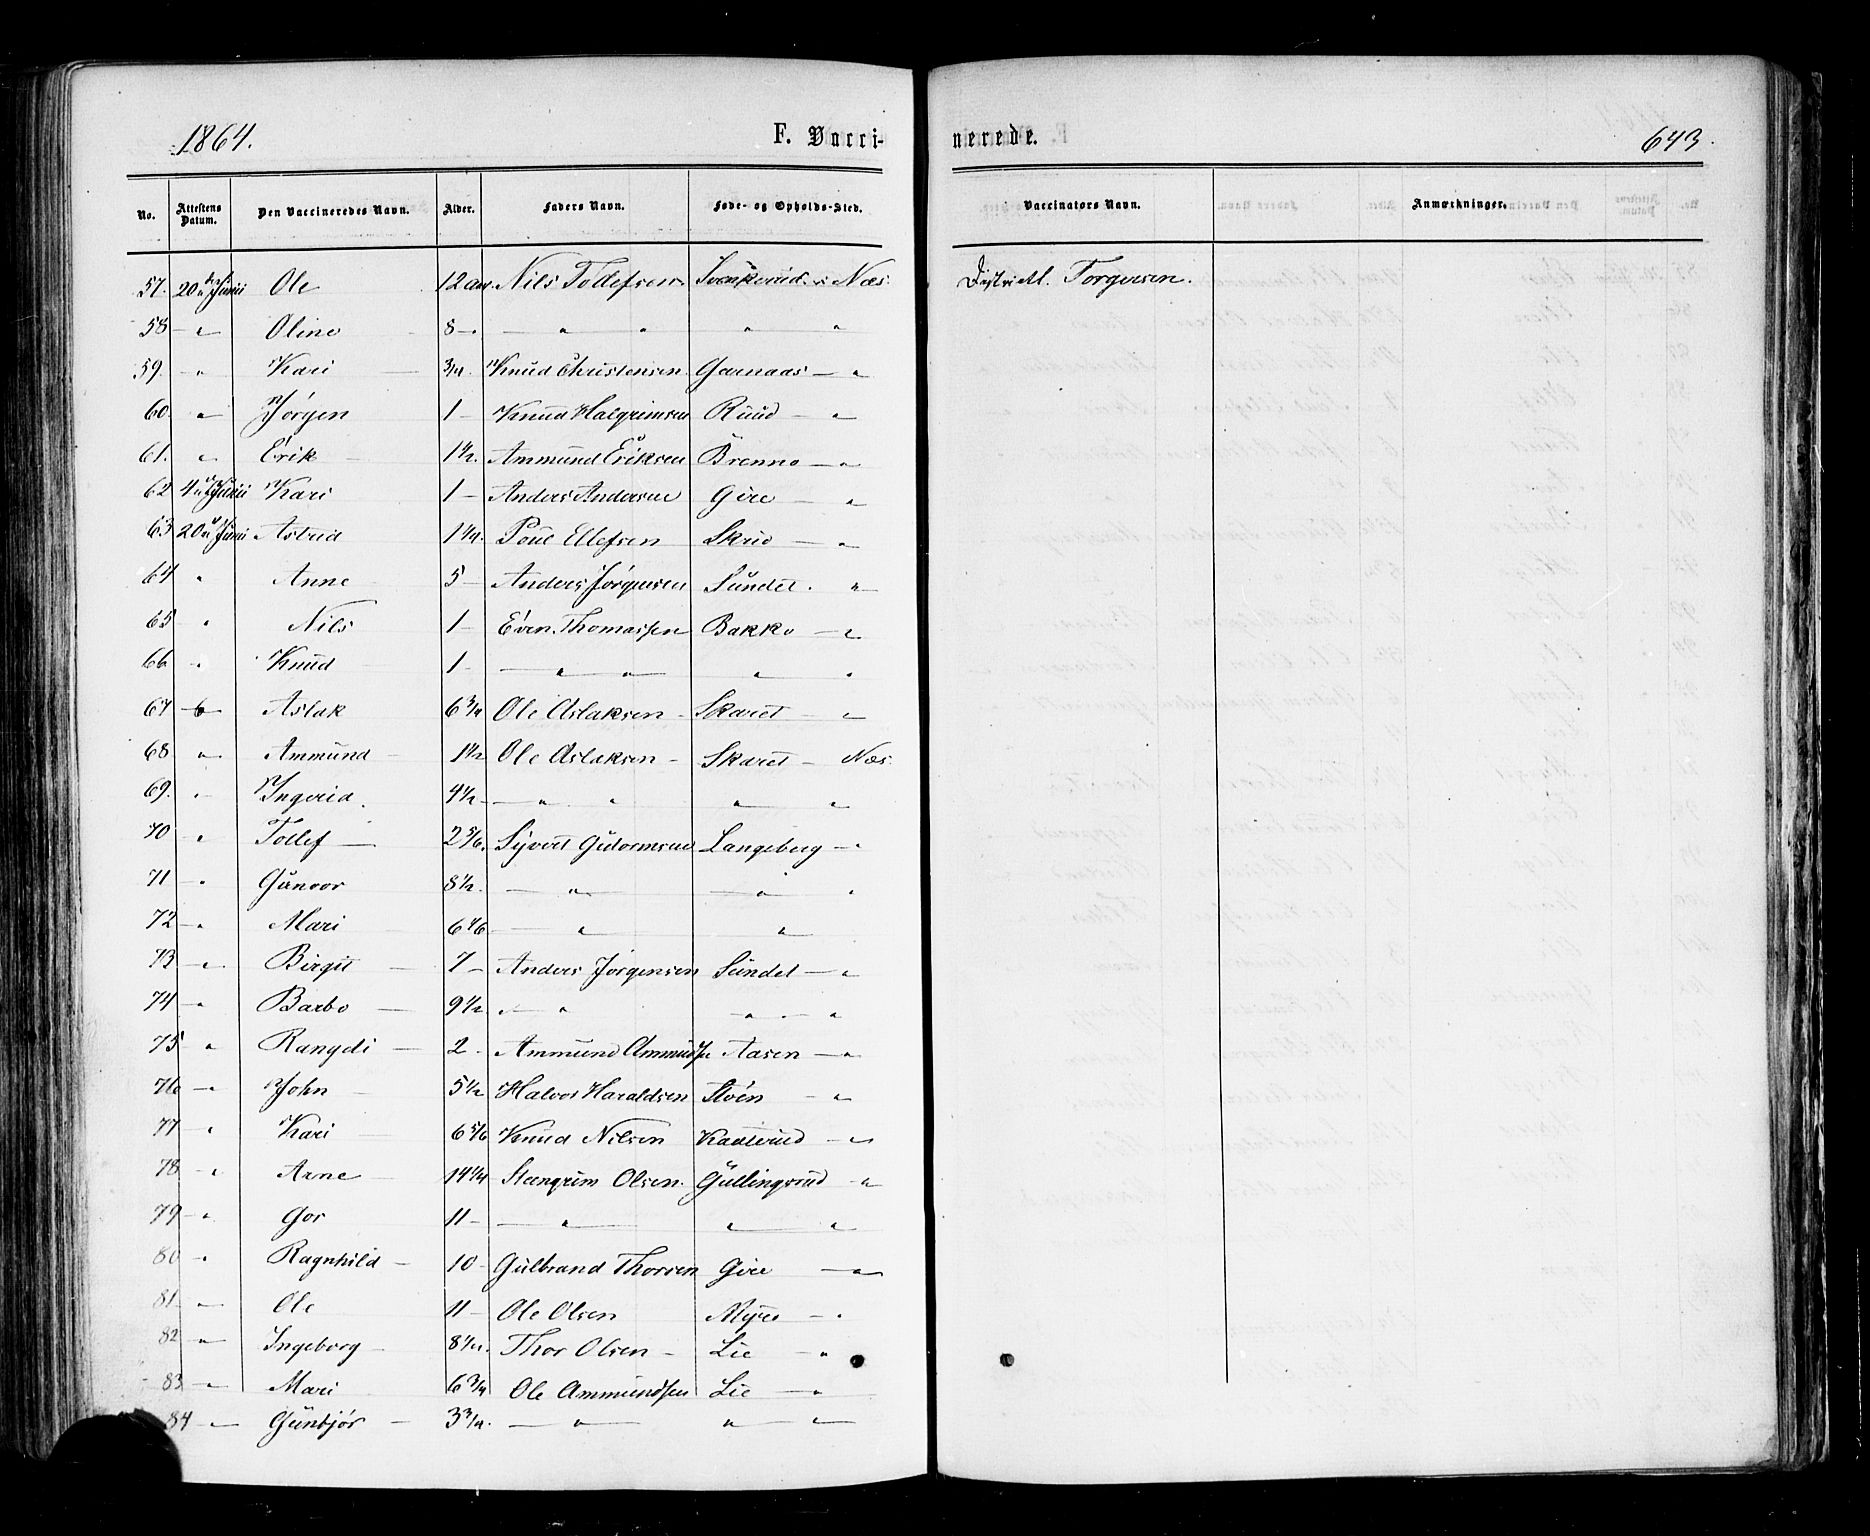 1864. F. Vacci- nerede. 643.
No. Attestens Datum. Den Vaccineredes Navn. Alder. Faders Navn. Føde- og Opholds-Sted. Vaccinatørs Navn. Anmærkninger.
57. 20 Juni Ole 12 Nils Tollefsen Næs. Torgersen.
58 " Oline 8 — " " " "
59. " Kari 3/4. Knud Christensen Garnaas — "
60. " Jörgen 1 — Knud Halgrimsen Ruud — "
61. " Erik 1 1/2. Ammund Eriksen Brenno — "
62 4 Juni Kari 1 — Anders Andersen Gire — "
63 20 Juni Astrid 1 1/4. Poul Ellefsen — "
64 " Anne 5 — Anders Jörgensen Sundet. "
65 " Nils 1 — Even Thomassen Bakko — "
66 " Knud 1 — " " " "
67 Aslak 6 3/4 Ole Aslaksen — Skaret — "
68 " Ammund — 1 1/2 Ole Aslaksen — Skaret — Næs.
69. " Ingerid. 4 1/2 — " " " "
70 " Tollef — 2 5/6. Syvert Gutormsen Langeberg — "
71 " Gunvor 8 1/2. — " — " "
72 " Mari 6 — " — "
73 " Birgit — 7 — Anders Jörgensen Sundet — "
74 " Barbo — 9 1/2. " " " "
75 " Rangdi — 2. Ammund Aasen — "
76 " John — 5 1/2 Halvor Haraldsen Stöen — "
77 " Kari — 6 5/6 Knud Nilsen — "
78 " Arne — 14 1/4 Steengrim Olsen. Gullingsrud — "
79 " Gor 11 — — " — " "
80 " Ragnhild — 10 — Gulbrand Thorsen Gire — "
81 " Ole 11 — Ole Olsen Myre — "
82 " Ingeborg — Thor Olsen — Lie — "
83 " Mari 6 3/4 Ole Ammundsen Lie — "
84 " Gunbjör — 3 3/4. — " — " "